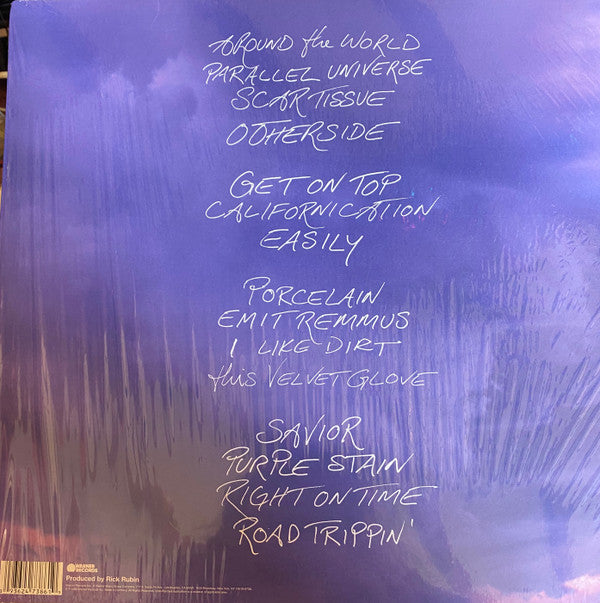 AROUND the WORLD
PARALLEL UNIVERSE
SCAR TISSUE
OTHERSIDE
GET ON TOP
CALIFORNICATION
EASILY
PORCELAIN
EMIT REMMUS
I LIKE DIRT
this VELVET GLOVE
SAVIOR
PURPLE STAIN
RIGHT ON TIME
ROAD TRIPPIN'
WARNER
RECORDS
Produced by Rick Rubin